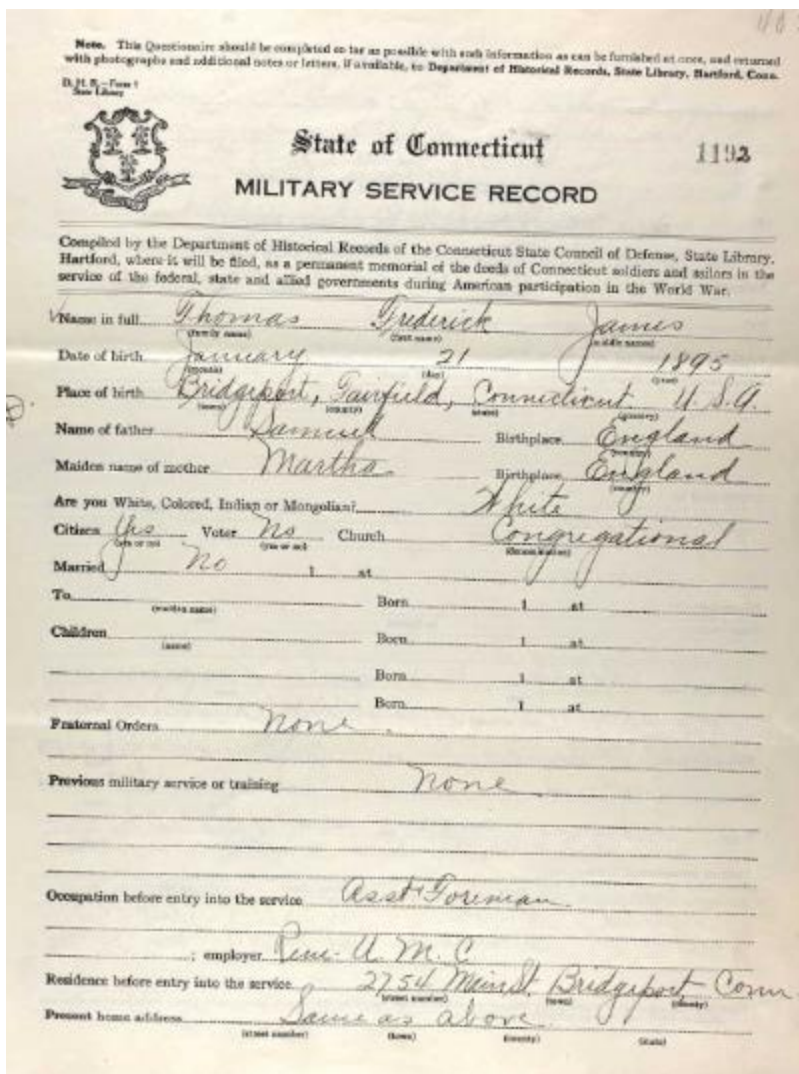 Note. This Questionaire should be completed so far as possible with such information as can be furnished at once, and returned
with photographs and additional notes or letters, if available, to Department of Historical Records, State Library, Hartford, Conn.
D. H. R.—Form 1
State Library
State of Connecticut 1192
MILITARY SERVICE RECORD
Compiled by the Department of Historical Records of the Connecticut State Council of Defense, State Library,
Hartford, where it will be filed, as a permanent memorial of the deeds of Connecticut soldiers and sailors in the
service of the federal, state and allied governments during American participation in the World War.
Name in full Thomas Frederick James
(family name) (first name) (middle names)
Date of birth January 21 1895
(month) (day) (year)
Place of birth Bridgeport, Fairfield, Connecticut U S.A.
(town) (county) (state) (country)
Name of father Samuel Birthplace England
(country)
Maiden name of mother Martha Birthplace England
(country)
Are you White, Colored, Indian or Mongolian? White
Citizen Yes Voter No Church Congregational
(yes or no) (yes or no) (denomination)
Married No 1 at
To Born 1 at
(maiden name)
Children Born 1 at
(name)
Born 1 at
Born 1 at
Fraternal Orders None.
Previous military service or training None
Occupation before entry into the service Asst Foreman
; employer Rem- U. M. C
Residence before entry into the service 2754 Main St. Bridgeport, Conn
(street number) (town) (county)
Present home address Same as above
(street number) (town) (county) (state)